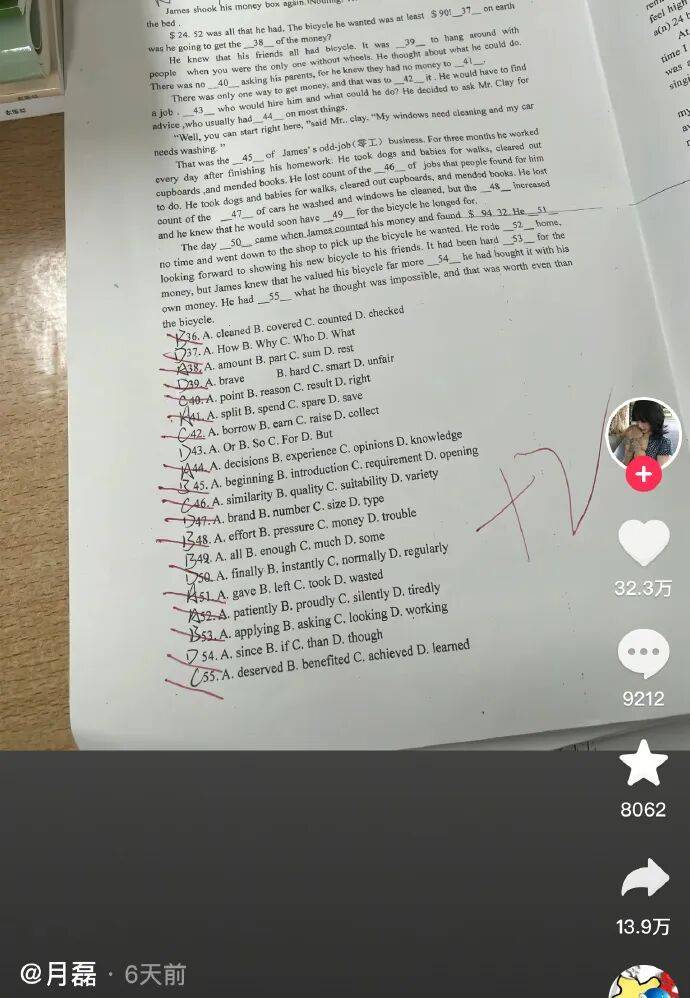 James shook his money box again. Nothing!
the bed .
$ 24. 52 was all that he had. The bicycle he wanted was at least $ 90! __37__ on earth
was he going to get the __38__ of the money?
He knew that his friends all had bicycle. It was __39__ to hang around with
people when you were the only one without wheels. He thought about what he could do.
There was no __40__ asking his parents, for he knew they had no money to __41__.
There was only one way to get money, and that was to __42__ it . He would have to find
a job . __43__ who would hire him and what could he do? He decided to ask Mr. Clay for
advice ,who usually had __44__ on most things.
“Well, you can start right here, ”said Mr.. clay. “My windows need cleaning and my car
needs washing. ”
That was the __45__ of James' s odd-job(零工) business. For three months he worked
every day after finishing his homework. He took dogs and babies for walks, cleared out
cupboards ,and mended books. He lost count of the __46__ of jobs that people found for him
to do. He took dogs and babies for walks, cleared out cupboards, and mended books. He lost
count of the __47__ of cars he washed and windows he cleaned, but the __48__ increased
and he knew that he would soon have __49__ for the bicycle he longed for.
The day __50__ came when James counted his money and found $ 94. 32. He __51__
no time and went down to the shop to pick up the bicycle he wanted. He rode __52__ home,
looking forward to showing his new bicycle to his friends. It had been hard __53__ for the
money, but James knew that he valued his bicycle far more __54__ he had bought it with his
own money. He had __55__ what he thought was impossible, and that was worth even than
the bicycle.
B36. A. cleaned B. covered C. counted D. checked
D37. A. How B. Why C. Who D. What
A38. A. amount B. part C. sum D. rest
D39. A. brave B. hard C. smart D. unfair
C40. A. point B. reason C. result D. right
A41. A. split B. spend C. spare D. save
C42. A. borrow B. earn C. raise D. collect
D43. A. Or B. So C. For D. But
A44. A. decisions B. experience C. opinions D. knowledge
B45. A. beginning B. introduction C. requirement D. opening
C46. A. similarity B. quality C. suitability D. variety
D47. A. brand B. number C. size D. type
B48. A. effort B. pressure C. money D. trouble
B49. A. all B. enough C. much D. some
D50. A. finally B, instantly C, normally D. regularly
A51. A. gave B. left C. took D. wasted
A52. A. patiently B, proudly C. silently D. tiredly
B53. A. applying B. asking C. looking D. working
D54. A. since B. if C. than D. though
C55. A. deserved B. benefited C. achieved D. learned
feel high
a(n) 24 h
At
time I
was a
singi
my
32.3万
9212
8062
13.9万
@月磊 · 6天前